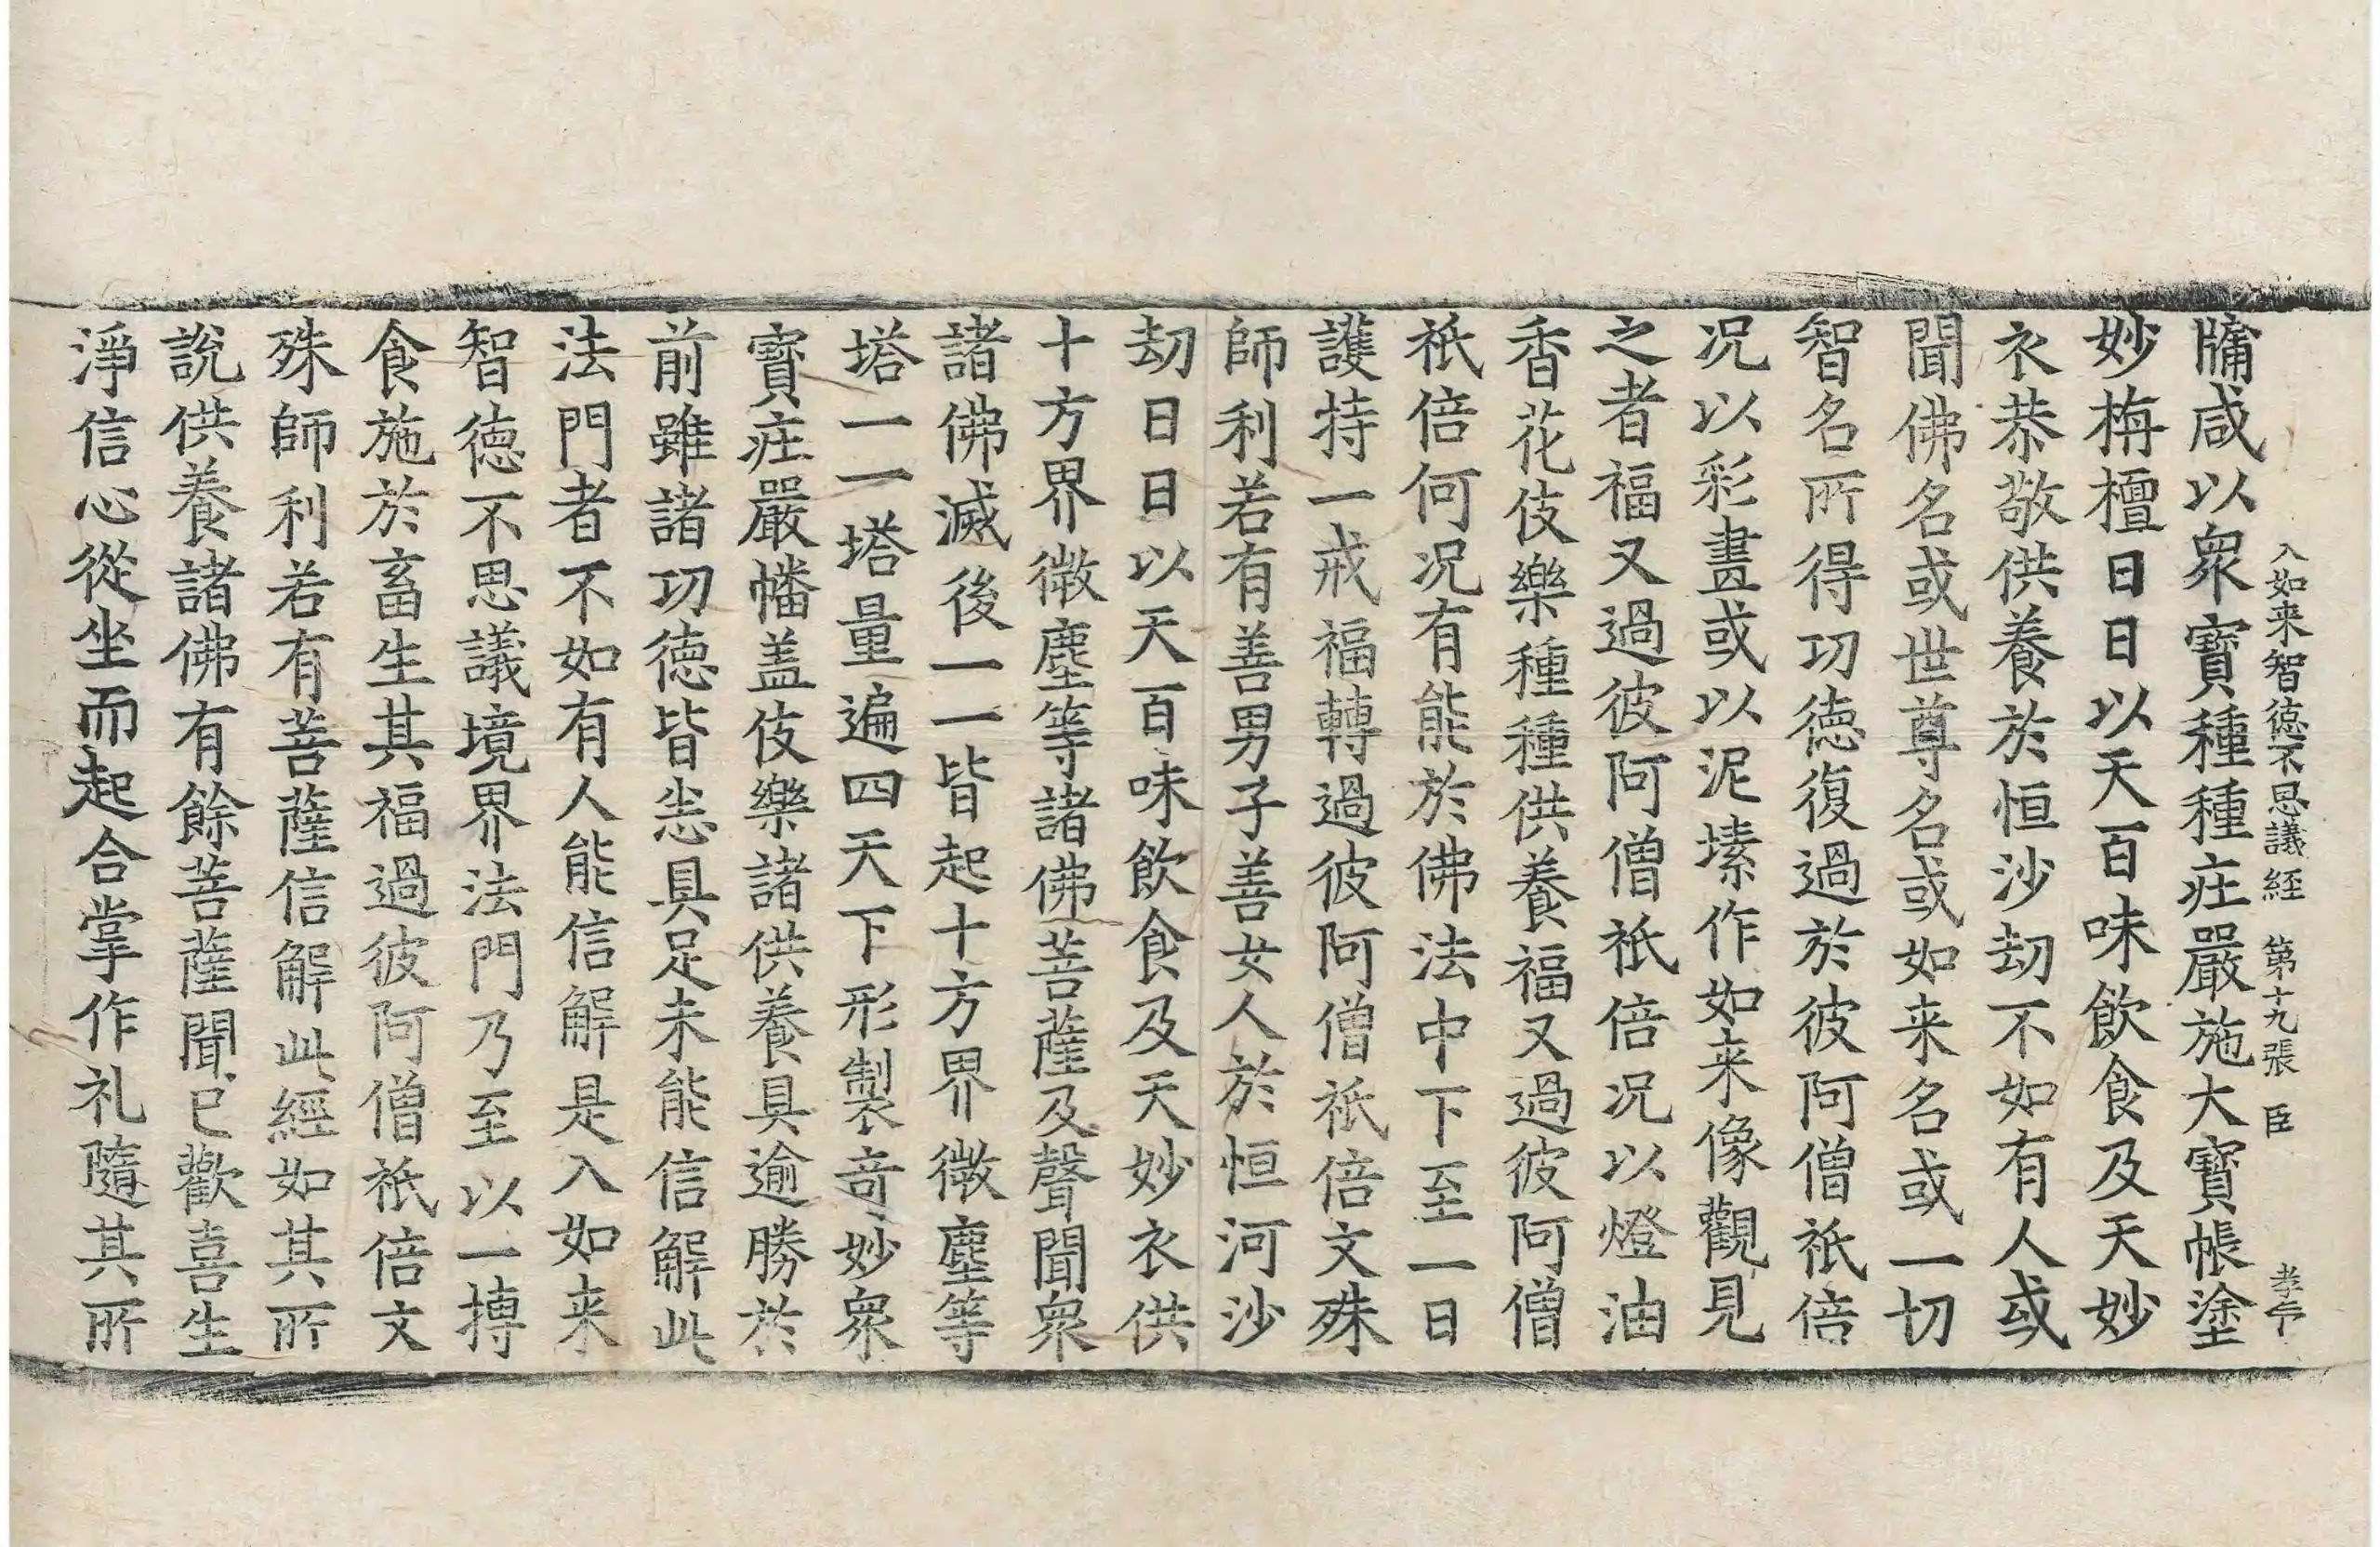 入如来智徳不思議経 第十九張 臣
牗咸以衆寶種種莊嚴施大寶帳塗
妙栴檀日日以天百味飲食及天妙
衣恭敬供養於恒沙劫不如有人或
聞佛名或世尊名或如来名或一切
智名所得功徳復過於彼阿僧祇倍
况以彩畫或以泥塐作如来像觀見
之者福又過彼阿僧祇倍况以燈油
香花伎樂種種供養福又過彼阿僧
祇倍何况有能於佛法中下至一日
護持一戒福轉過彼阿僧祇倍文殊
師利若有善男子善女人於恒河沙
劫日日以天百味飲食及天妙衣供
十方界微塵等諸佛菩薩及聲聞衆
諸佛滅後一一皆起十方界微塵等
塔一一塔量遍四天下形製奇妙衆
寶莊嚴幡盖伎樂諸供養具逾勝於
前雖諸功徳皆悉具足未能信解此
法門者不如有人能信解是入如来
智徳不思議境界法門乃至以一摶
食施於畜生其福過彼阿僧祇倍文
殊師利若有菩薩信解此經如其所
說供養諸佛有餘菩薩聞已歡喜生
淨信心從坐而起合掌作礼隨其所